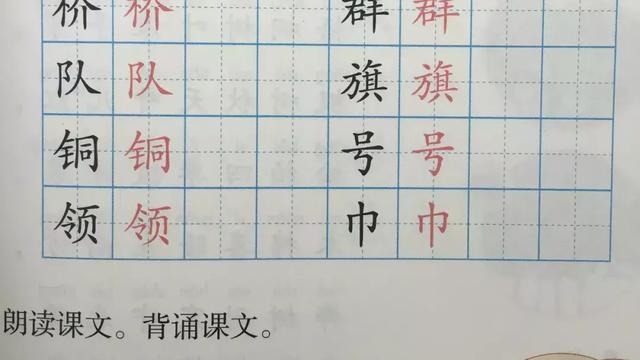 桥 桥 群 群
队 队 旗 旗
铜 铜 号 号
领 领 巾 巾
朗读课文。背诵课文。